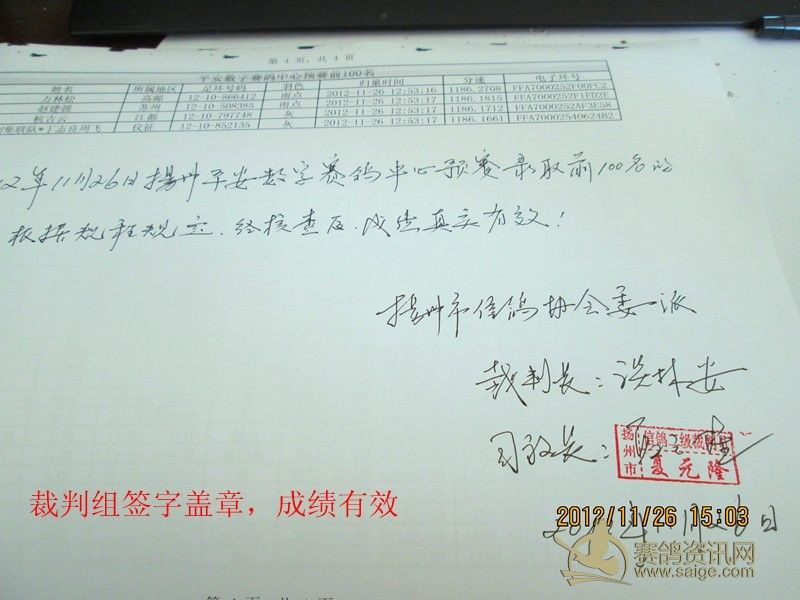 第 4 页, 共 4 页
平安数字赛鸽中心预赛前100名
姓名 所属地区 足环号码 羽色 归巢时间 分速 电子环号
万林松 高邮 12-10-866412 雨点 2012-11-26 12:53:16 1186.2708 FFA7000252F00FC2
赵建强 苏州 12-10-508385 雨点 2012-11-26 12:53:17 1186.1815 FFA7000252F1ED2E
杭吉云 江都 12-10-797748 灰 2012-11-26 12:53:17 1186.1712 FFA7000252AF3E58
联队*丁志良周飞 仪征 12-10-852135 灰 2012-11-26 12:53:17 1186.1661 FFA70002540624B2
2年11月26日扬州平安数字赛鸽中心预赛录取前100名的
根据规程规定.经核查后.成绩真实有效!
扬州市信鸽协会委派
裁判长:谈林安
司放长:
扬州市 信鸽一级裁判员 夏元隆
裁判组签字盖章，成绩有效
2012/11/26 15:03
2012年11月26日
赛鸽资讯网
www.saige.com